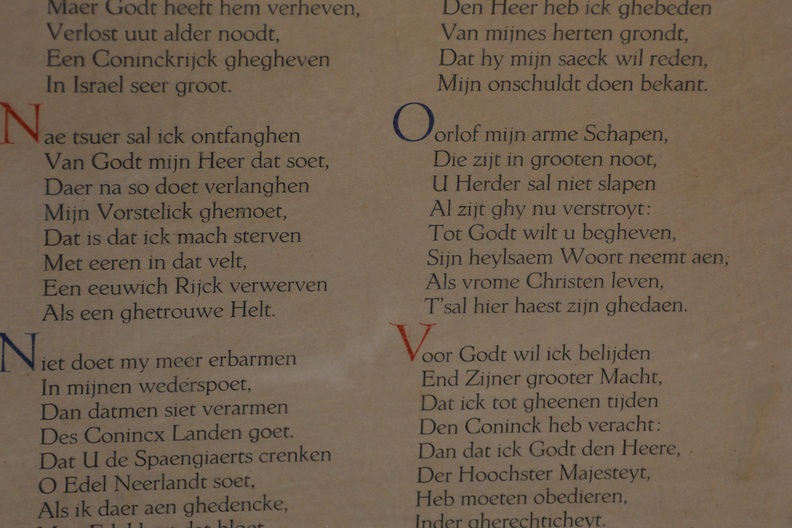 Maer Godt heeft hem verheven,
Verlost uut alder noodt,
Een Coninckrijck ghegheven
In Israel seer groot.
Nae tsuer sal ick ontfanghen
Van Godt mijn Heer dat soet,
Daer na so doet verlanghen
Mijn Vorstelick ghemoet,
Dat is dat ick mach sterven
Met eeren in dat velt,
Een eeuwich Rijck verwerven
Als een ghetrouwe Helt.
Niet doet my meer erbarmen
In mijnen wederspoet,
Dan datmen siet verarmen
Des Conincx Landen goet.
Dat U de Spaengiaerts crenken
O Edel Neerlandt soet,
Als ik daer aen ghedencke,
Mijn Edel hert dat bloet.
Den Heer heb ick ghebeden
Van mijnes herten grondt,
Dat hy mijn saeck wil reden,
Mijn onschuldt doen bekant.
Oorlof mijn arme Schapen,
Die zijt in grooten noot,
U Herder sal niet slapen
Al zijt ghy nu verstroyt:
Tot Godt wilt u begheven,
Sijn heylsaem Woort neemt aen,
Als vrome Christen leven,
T'sal hier haest zijn ghedaen.
Voor Godt wil ick belijden
End Zijner grooter Macht,
Dat ick tot gheenen tijden
Den Coninck heb veracht:
Dan dat ick Godt den Heere,
Der Hoochster Majesteyt,
Heb moeten obedieren,
Inder gherechticheyt.